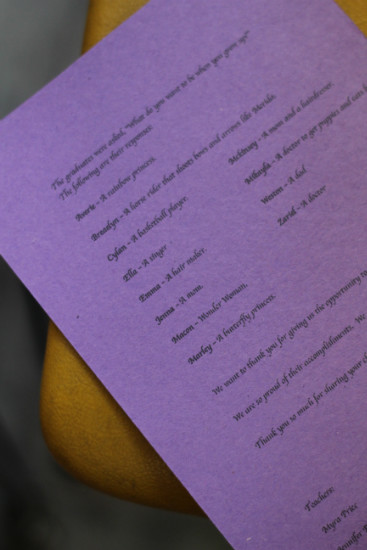 The graduates were asked, "What do you want to be when you grow up?"
The following are their responses:
Averie - A rainbow princess.
Brooklyn - A horse rider that shoots bows and arrows like Merida.
Cylan - A basketball player.
Ella - A singer
Emma - A hair maker.
Jenna - A mom.
Macen - Wonder Woman.
Marley - A butterfly princess.
McKinsey - A mom and a hairdresser.
Mikayla - A doctor to get puppies and cats
Weston - A dad
Zariah - A doctor
We want to thank you for giving us the opportunity to
We are so proud of their accomplishments. We
Thank you so much for sharing your
Teachers:
Myra Price
Jennifer